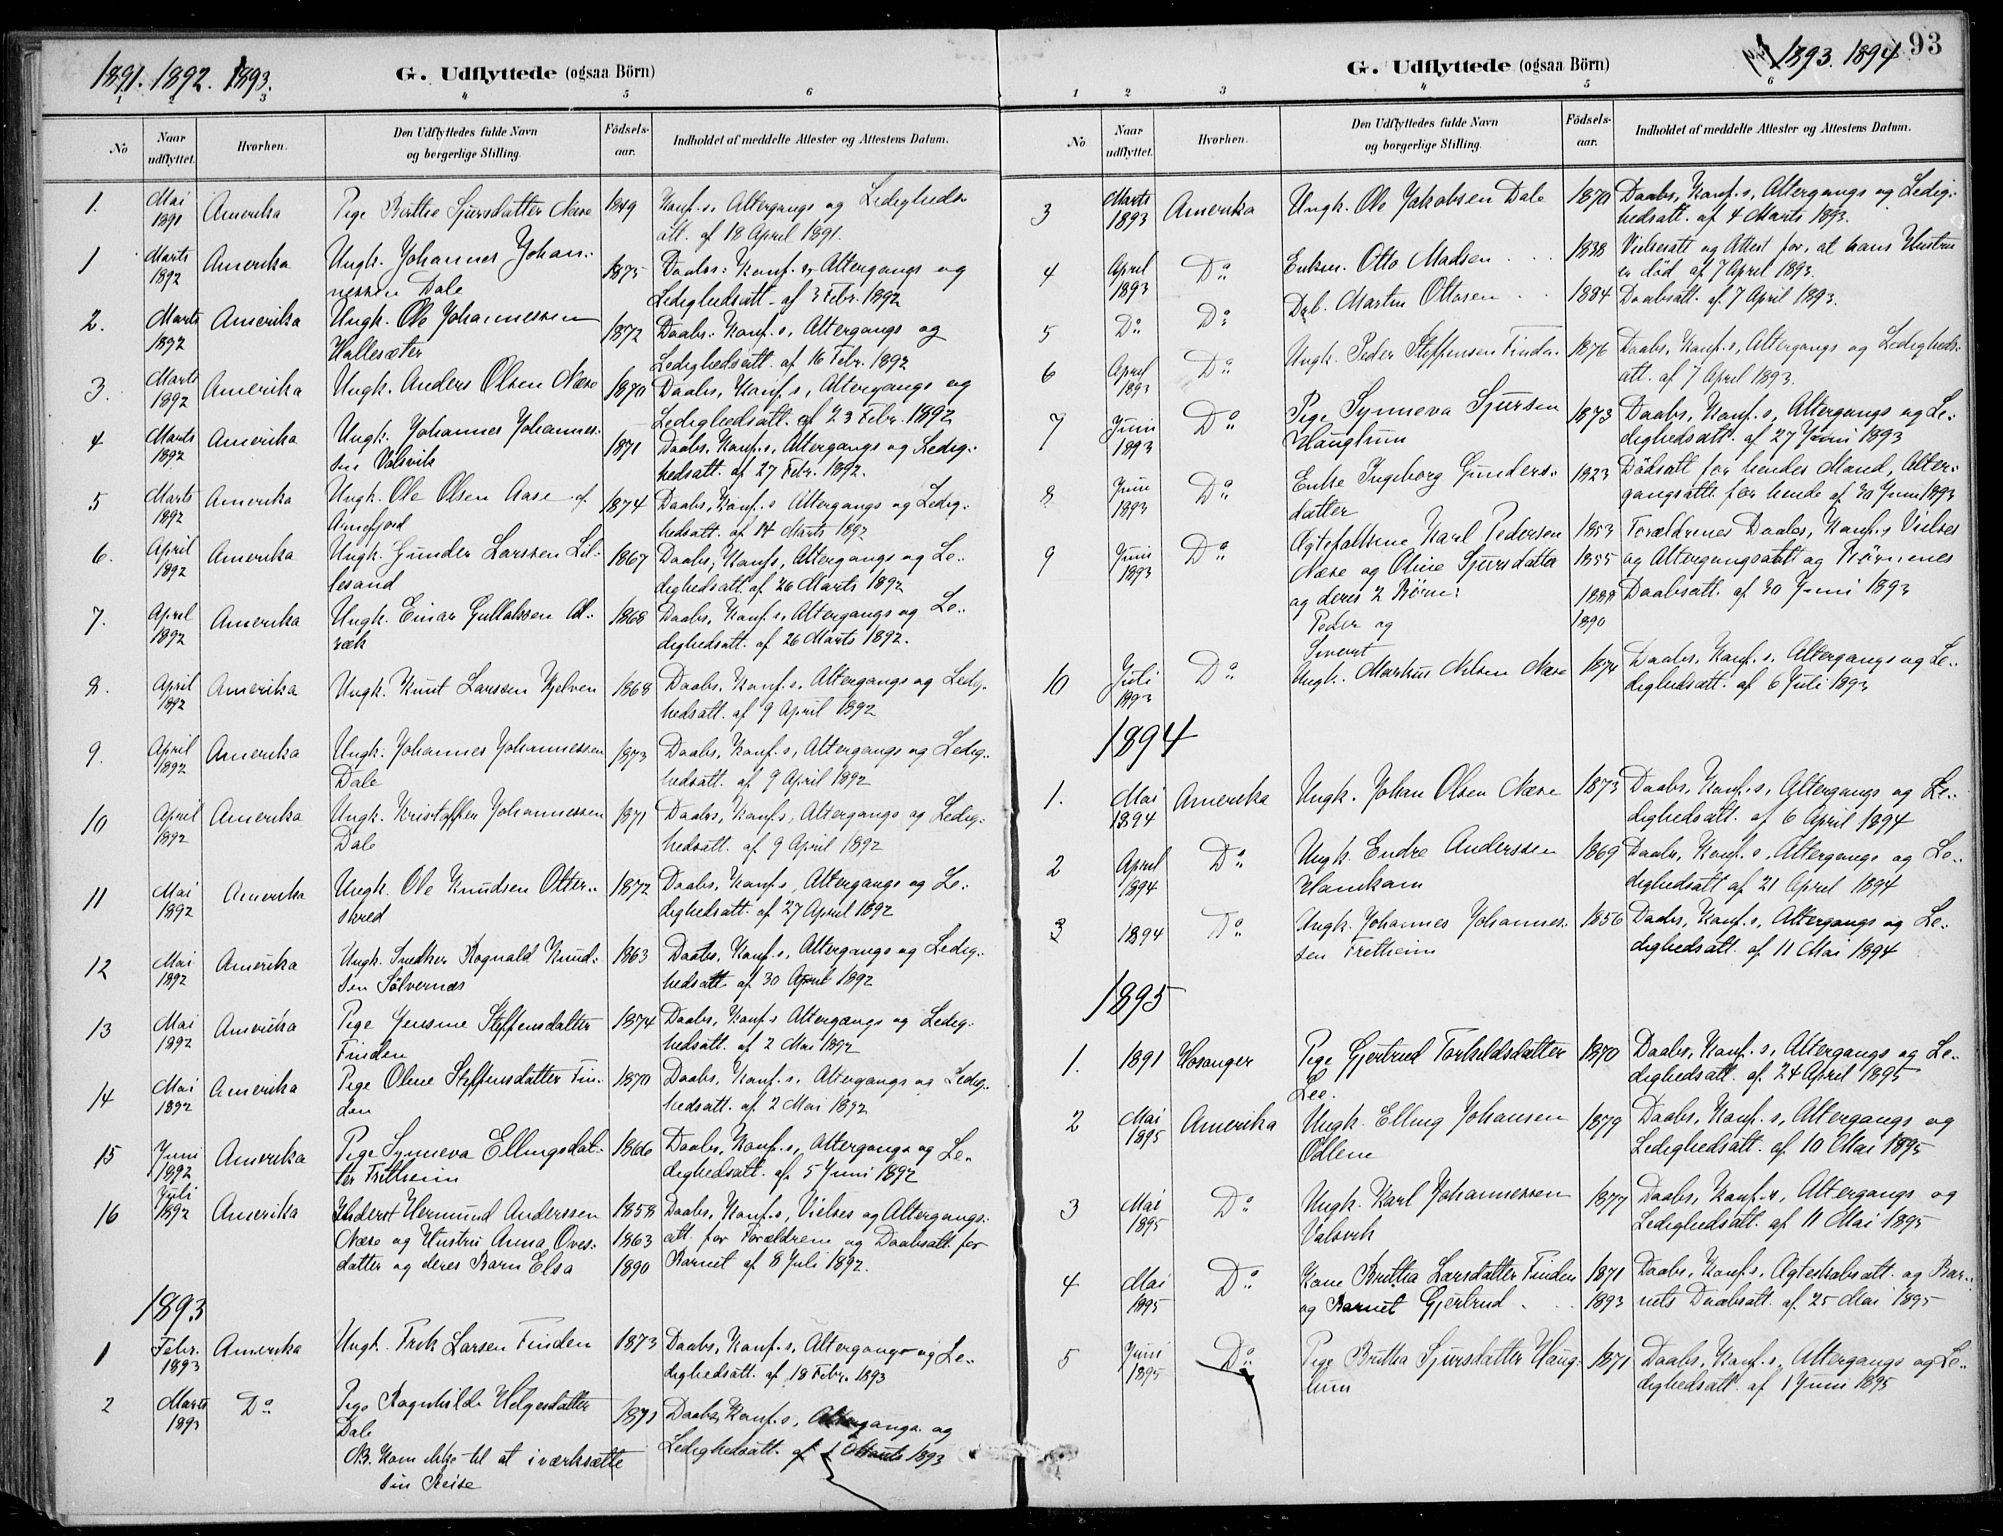 1891. 1892. 1893.
G. Udflyttede (ogsaa Börn)
1 2 3 4 5 6
No
Naar udflyttet.
Hvorhen.
Den Udflyttedes fulde Navn og borgerlige Stilling.
Födsels-aar.
Indholdet af meddelte Attester og Attestens Datum.
1. Mai 1891 Amerika Pige Brithe Sjursdatter Næse 1849 Konf.s, Altergangs og Ledigheds
att. af 18 April 1891.
1 Marts 1892 Amerika Ungk. Johannes Johan- 1875 Daabs, Konf.s, Altergangs og
nessen Dale Ledighedsatt. af 3 Febr. 1892
2. Marts 1892 Amerika Ungk. Ole Johannessen 1872 Daabs, Konf.s, Altergangs og
Hallesæter Ledighedsatt. af 16 Febr. 1892
3. Marts 1892 Amerika Ungk. Anders Olsen Næse 1870 Daabs, Konf.s, Altergangs og
Ledighedsatt. af 23 Febr. 1892
4 Marts 1892 Amerika Ungk. Johannes Johannes- 1871 Daabs, Konf.s, Altergangs og Ledig-
sen Valsvik hedsatt. af 27 Febr. 1892.
5 Marts 1892 Amerika Ungk. Ole Olsen Aase af 1874 Daabs, Konf.s Altergangs og Ledig-
Arnefjord hedsatt. af 14 Marts 1892
6. April 1892 Amerika Ungk. Gunder Larssen Lil- 1867 Daabs, Konf.s, Altergangs og Le-
lesand dighedsatt. af 26 Marts 1892
7. April 1892 Amerika Ungk. Einar Gullaksen 1868 Daabs, Konf.s, Altergangs og Le-
dighedsatt. af 26 Marts 1892.
8. April 1892 Amerika Ungk. Knut Larssen Hjelven 1868 Daabs, Konf.s, Altergangs og Ledig-
hedsatt. af 9 April 1892
9. April 1892 Amerika Ungk. Johannes Johannessen 1873 Daabs, Konf.s, Altergangs og Ledig-
Dale hedsatt. af 9 April 1892
10 April 1892 Amerika Ungk. Kristoffer Johannessen 1871 Daabs, Konf.s, Altergangs og Ledig-
Dale hedsatt. af 9 April 1892
11 Mai 1892 Amerika Ungk. Ole Knudsen Otter- 1872 Daabs, Konf.s, Altergangs og Le-
skred dighedsatt. af 27 April 1892
12 Mai 1892 Amerika Ungk. Snedker Rognald Knud- 1863 Daabs, Konf.s, Altergangs og Ledig-
sen Sölvernæs hedsatt. af 30 April 1892
13 Mai 1892 Amerika Pige Jensine Steffensdatter 1874 Daabs, Konf.s Altergangs og Ledig-
Finden hedsatt. af 2 Mai 1892
14 Mai 1892 Amerika Pige Oline Steffensdatter Fin- 1870 Daabs, Konf.s, Altergangs og Ledig-
den hedsatt. af 2 Mai 1892
15 Juni 1892 Amerika Pige Synneva Ellingsdat- 1866 Daabs, Konf.s, Altergangs og Le-
ter Fretheim dighedsatt. af 5 Juni 1892
16 Juli 1892 Amerika Inderst Hermund Anderssen 1858 Daabs, Konf.s, Vielses og Altergangs-
Næse og Hustru Anna Oves- 1863 att. for Forældrene og Daabsatt. for
datter og deres Barn Elsa 1890 Barnet af 8 Juli 1892.
1893
1 Febr. 1893 Amerika Ungk. Larsen Finden 1873 Daabs, Konf.s, Altergangs og Le-
dighedsatt. af 18 Febr. 1893
2 Marts 1893 Do Pige Ragnhilda Helgesdatter 1871 Daabs, Konf.s, Altergangs og
Dale Ledighedsatt. af 1 Marts 1893
NB. Kom ikke til at iværksætte
sin Reise
1893. 1894 93
G. Udflyttede (ogsaa Börn)
1 2 3 4 5 6
No
Naar udflyttet.
Hvorhen.
Den Udflyttedes fulde Navn og borgerlige Stilling.
Födsels-aar.
Indholdet af meddelte Attester og Attestens Datum.
3 Marts 1893 Amerika Ungk. Ole Jakobsen Dale 1870 Daabs, Konf.s, Altergangs og Ledig-
hedsatt. af 4 Marts 1893.
4 April 1893 Do Enkem. Otto Madsen 1838 Vielsesatt og Attest for, at hans Hustru
er död af 7 April 1893.
5 Do Do Martin Ottosen 1884 Daabsatt. af 7 April 1893.
6 April 1893 Do Ungk. Peder Steffensen Finden 1876 Daabs, Konf.s, Altergangs og Ledigheds-
att. af 7 April 1893.
7 Juni 1893 Do Pige Synneva Sjursen 1873 Daabs, Konf.s, Altergangs og Le-
Haughum dighedsatt. af 27 Juni 1893
8 Juni 1893 Do Enke Ingeborg Gunders- 1823 Dödsatt for hendes Mand, Alter-
datter gangsatt. for hende af 30 Juni 1893
9 Juni 1893 Do Ægtefolkene Karl Pedersen 1853 Forældrenes Daabs, Konf.s Vielses
Næse og Oline Sjursdatter 1855 og Altergangsatt og Börnenes
og deres 2 Börn: 1888 Daabsatt. af 30 Juni 1893
Peder og 1890
Sivert
10 Juli 1893 Do Ungk. Markus Nilsen Næse 1874 Daabs, Konf.s, Altergangs og Le-
dighedsatt. af 6 Juli 1893
1894
1. Mai 1894 Amerika Ungk. Johan Olsen Næse 1873 Daabs, Konf.s, Altergangs og Le-
dighedsatt. af 6 April 1894
2 April 1894 Do Ungk. Endre Anderssen 1869 Daabs, Konf.s, Altergangs og Le-
Hamkam dighedsatt af 21 April 1894
3 1894 Do Ungk. Johannes Johannes- 1856 Daabs, Konf.s, Altergangs og Le-
sen Fretheim dighedsatt. af 11 Mai 1894
1895
1. 1891 Hosanger Pige Gjertrud Torkildsdatter 1870 Daabs, Konf.s, Altergangs og Le-
Lee. dighedsatt. af 24 April 1895
2 Mai 1895 Amerika Ungk. Elling Johansen 1879 Daabs, Konf.s, Altergangs og
Ödlene Ledighedsatt. af 10 Mai 1895
3 Mai 1895 Do Ungk. Karl Johannessen 1877 Daabs, Konf.s, Altergangs og
Valsvik Ledighedsatt. af 11 Mai 1895
4 Mai 1895 Do Kone Britha Larsdatter Finden 1871 Daabs, Konf.s, Ægteskabsatt. og Bar-
og Barnet Gjertrud 1893 nets Daabsatt. af 25 Mai 1895
5 Juni 1895 Do Pige Britha Sjursdatter Haug- 1871 Daabs, Konf.s, Altergangs og Le-
hum dighedsatt. af 1 Juni 1895